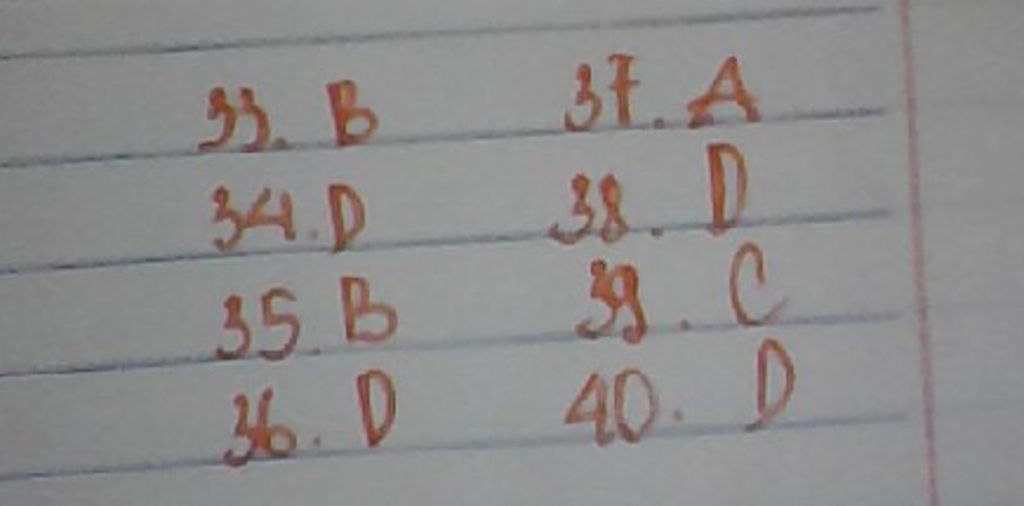 33. B 37. A
34. D 38. D
35. B 39. C
36. D 40. D